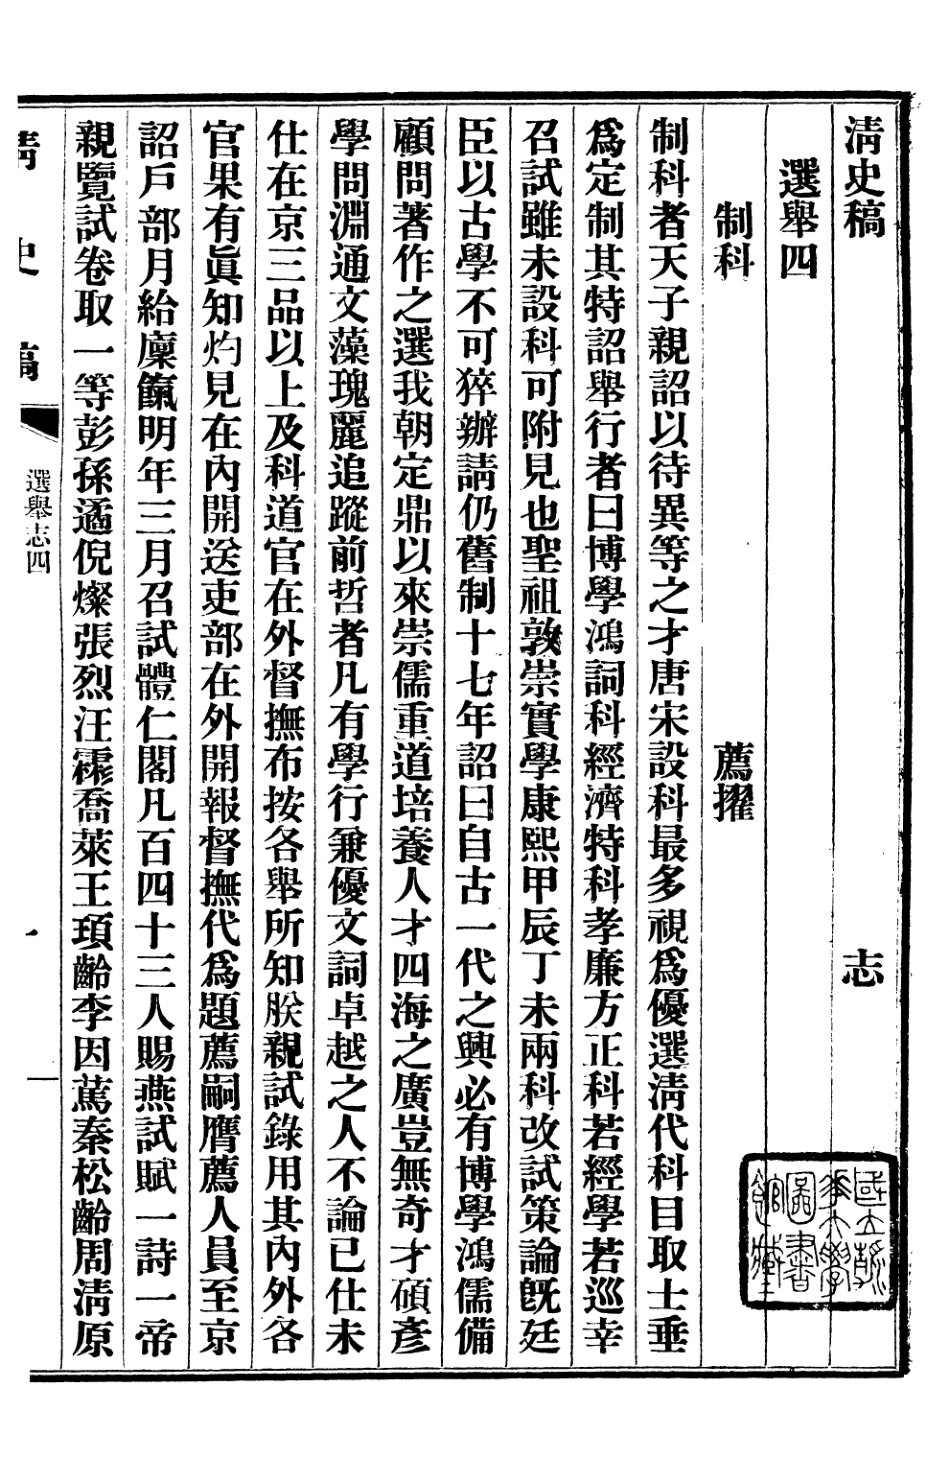 清史稿 志
選舉四
制科 薦擢
制科者天子親詔以待異等之才唐宋設科最多視爲優選清代科目取士垂
爲定制其特詔舉行者曰博學鴻詞科經濟特科孝廉方正科若經學若巡幸
召試雖未設科可附見也聖祖敦崇實學康熙甲辰丁未兩科改試策論旣廷
臣以古學不可猝辦請仍舊制十七年詔曰自古一代之興必有博學鴻儒備
顧問著作之選我朝定鼎以來崇儒重道培養人才四海之廣豈無奇才碩彥
學問淵通文藻瑰麗追蹤前哲者凡有學行兼優文詞卓越之人不論已仕未
仕在京三品以上及科道官在外督撫布按各舉所知朕親試錄用其內外各
官果有眞知灼見在內開送吏部在外開報督撫代爲題薦嗣膺薦人員至京
詔戶部月給廩餼明年三月召試體仁閣凡百四十三人賜燕試賦一詩一帝
親覽試卷取一等彭孫遹倪燦張烈汪霦喬萊王頊齡李因篤秦松齡周清原
清史稿
選舉志四
一
國立清華大學圖書館藏